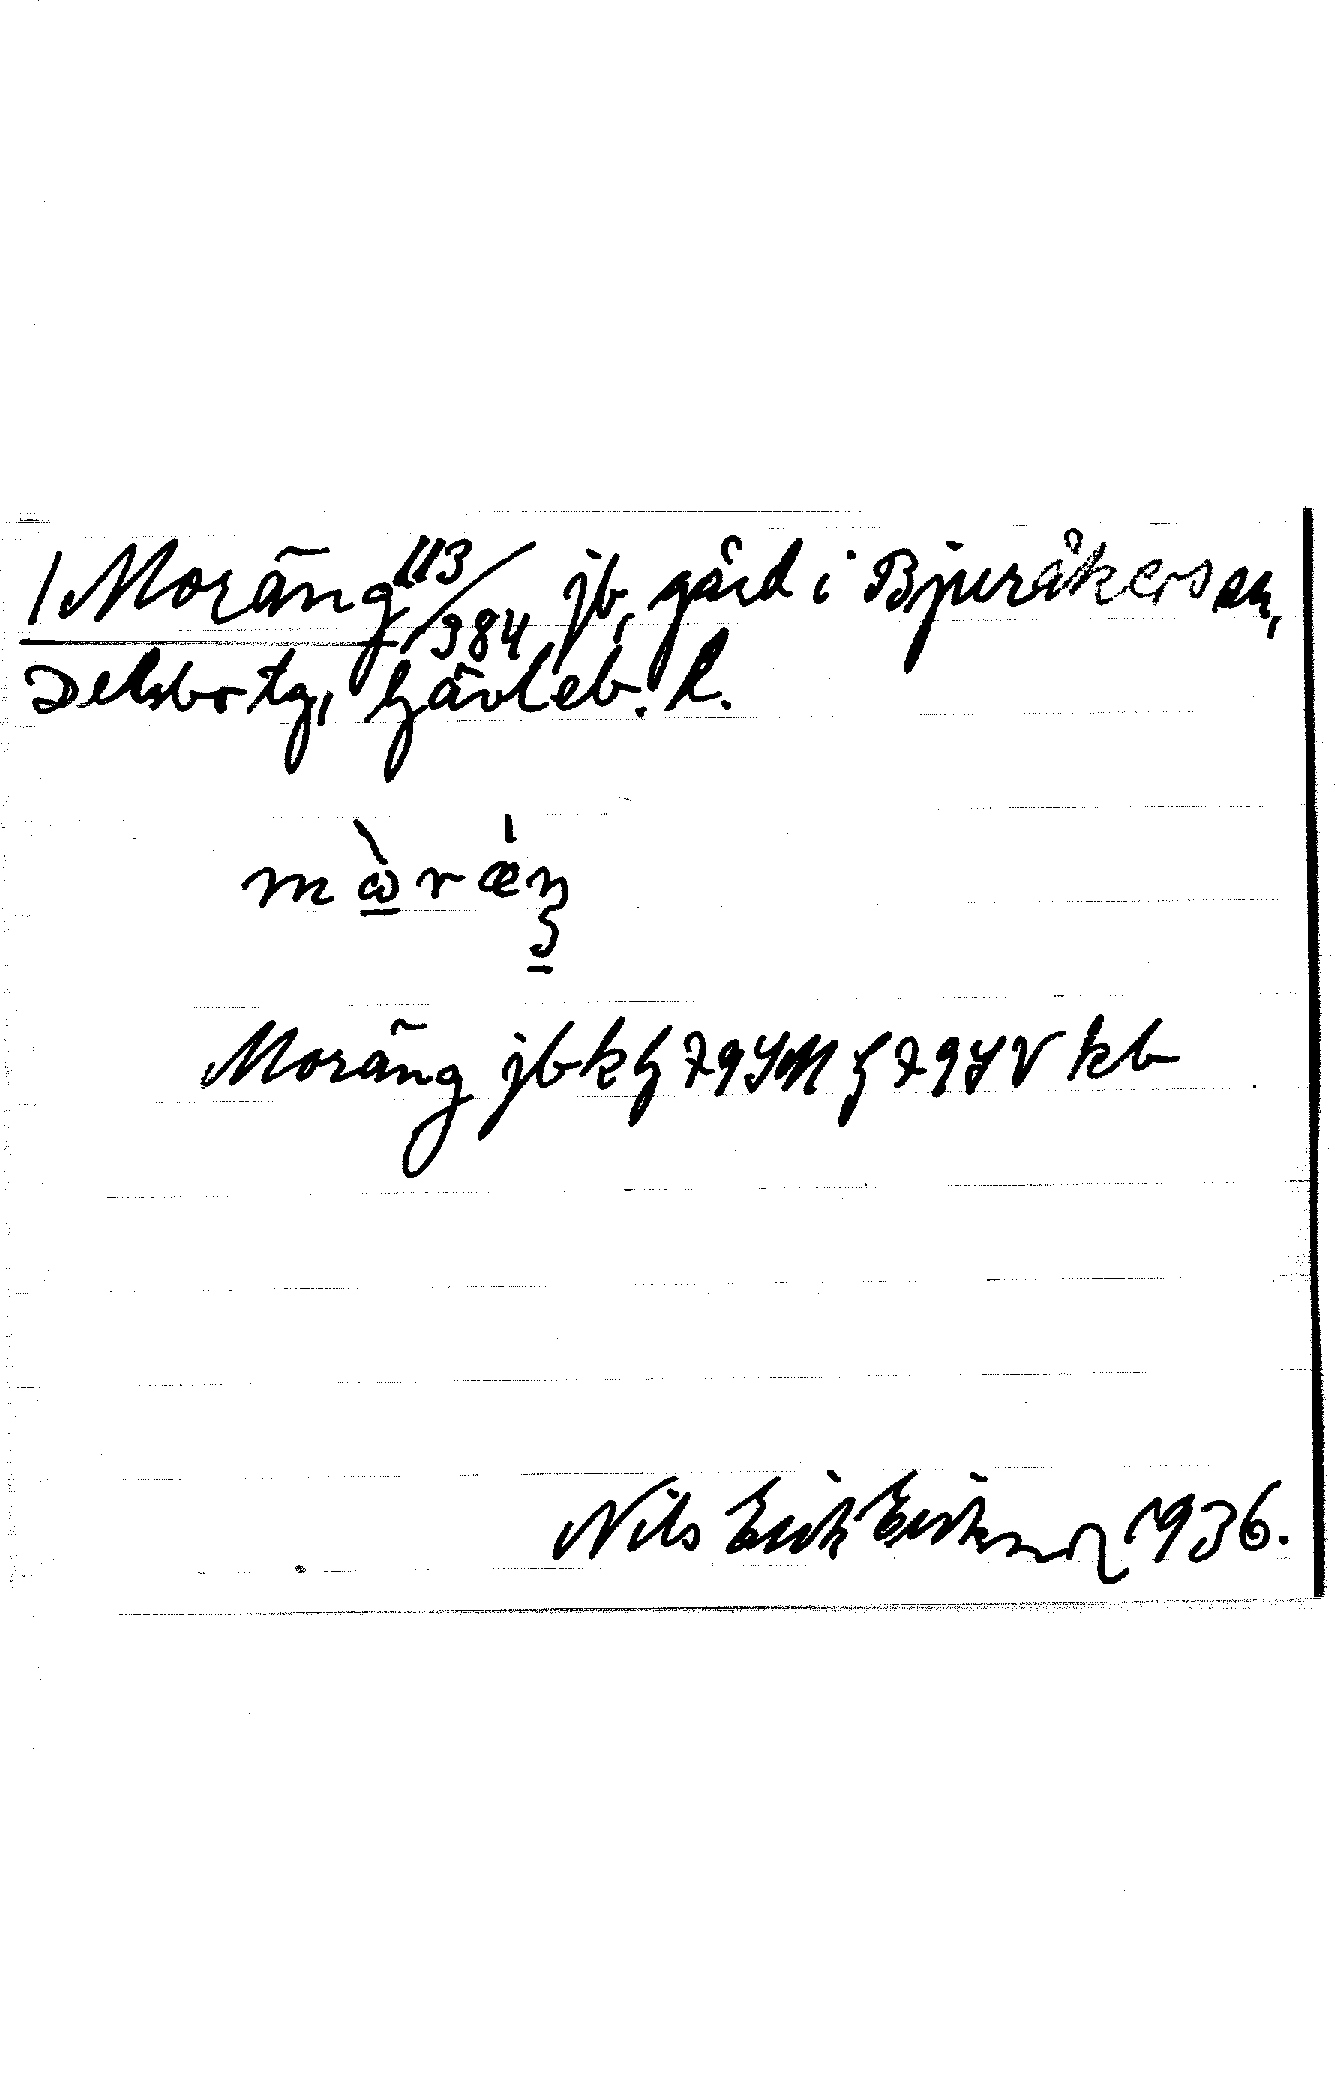 1 Moräng 113/384 jb, gård i Bjuråkers sn,
Delsbo tg, Gävleb. l.
mὼrǽŋ
Moräng jb k G 7 9 y M G 7 9 y V kb
Nils Erik Eriksson 1936.